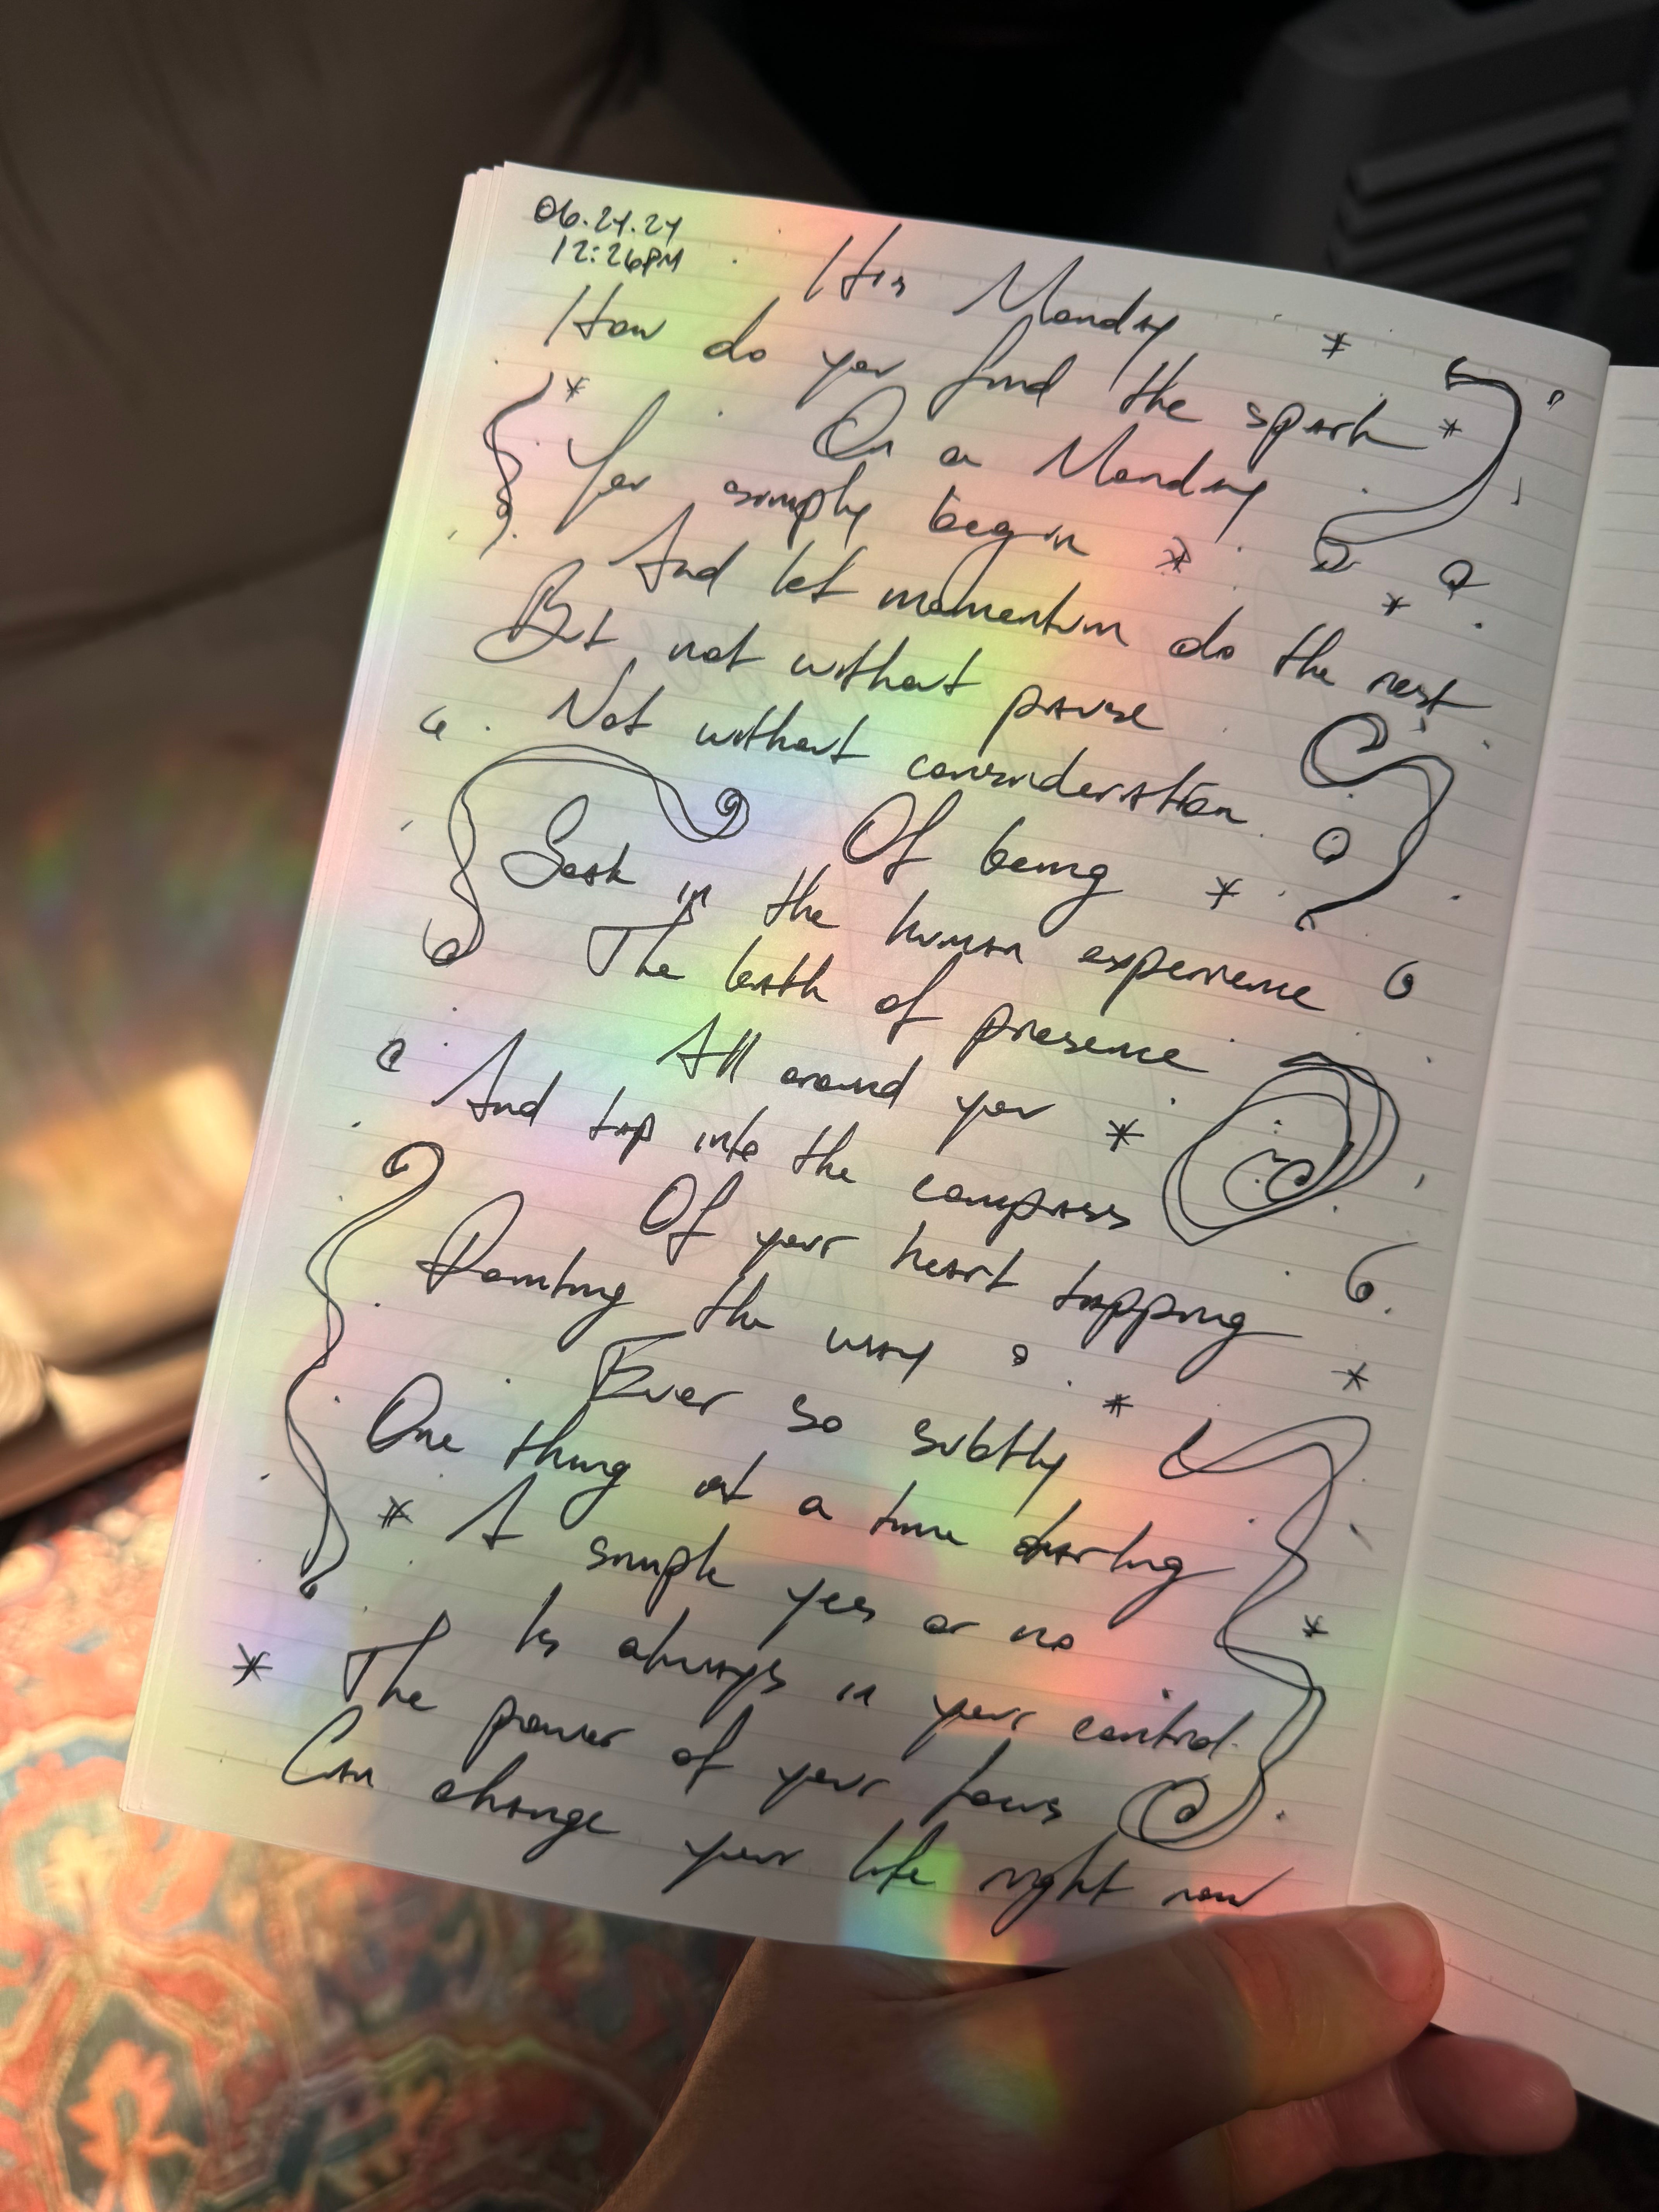 06.24.24
12:26PM
It's Monday
How do you find the spark
On a Monday
You simply begin
And let momentum do the rest
But not without pause
Not without consideration
Of being
Soak in the human experience
The bath of presence
All around you
And tap into the compass
Of your heart tapping
Pointing the way
Ever so subtly
One thing at a time darling
A simple yes or no
Is always in your control
The power of your focus
Can change your life right now